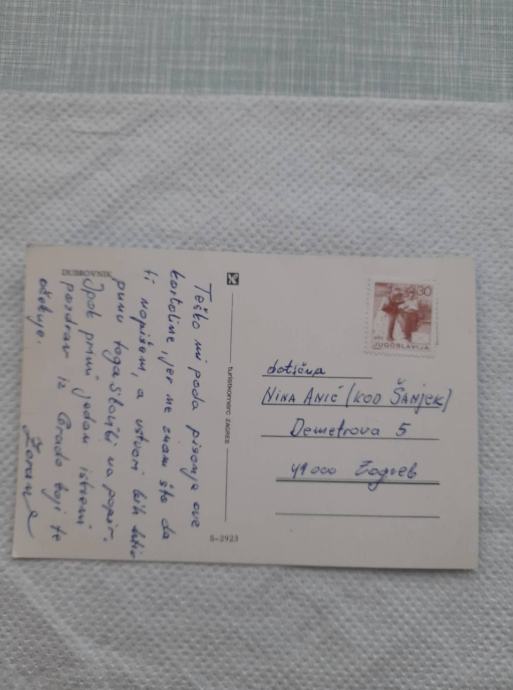 DUBROVNIK
Teško mi pada pisanje ove
kartoline, jer ne znam što da
ti napišem, a ustvari bih htio
puno toga staviti na papir.
Ipak primi jedan iskreni
pozdrav iz Grada koji te
očekuje.
Zoran
turistkomerc ZAGREB
S-2923
30
JUGOSLAVIJA
NINA ANIĆ (KOD ŠANJEK)
Demetrova 5
41000 Zagreb